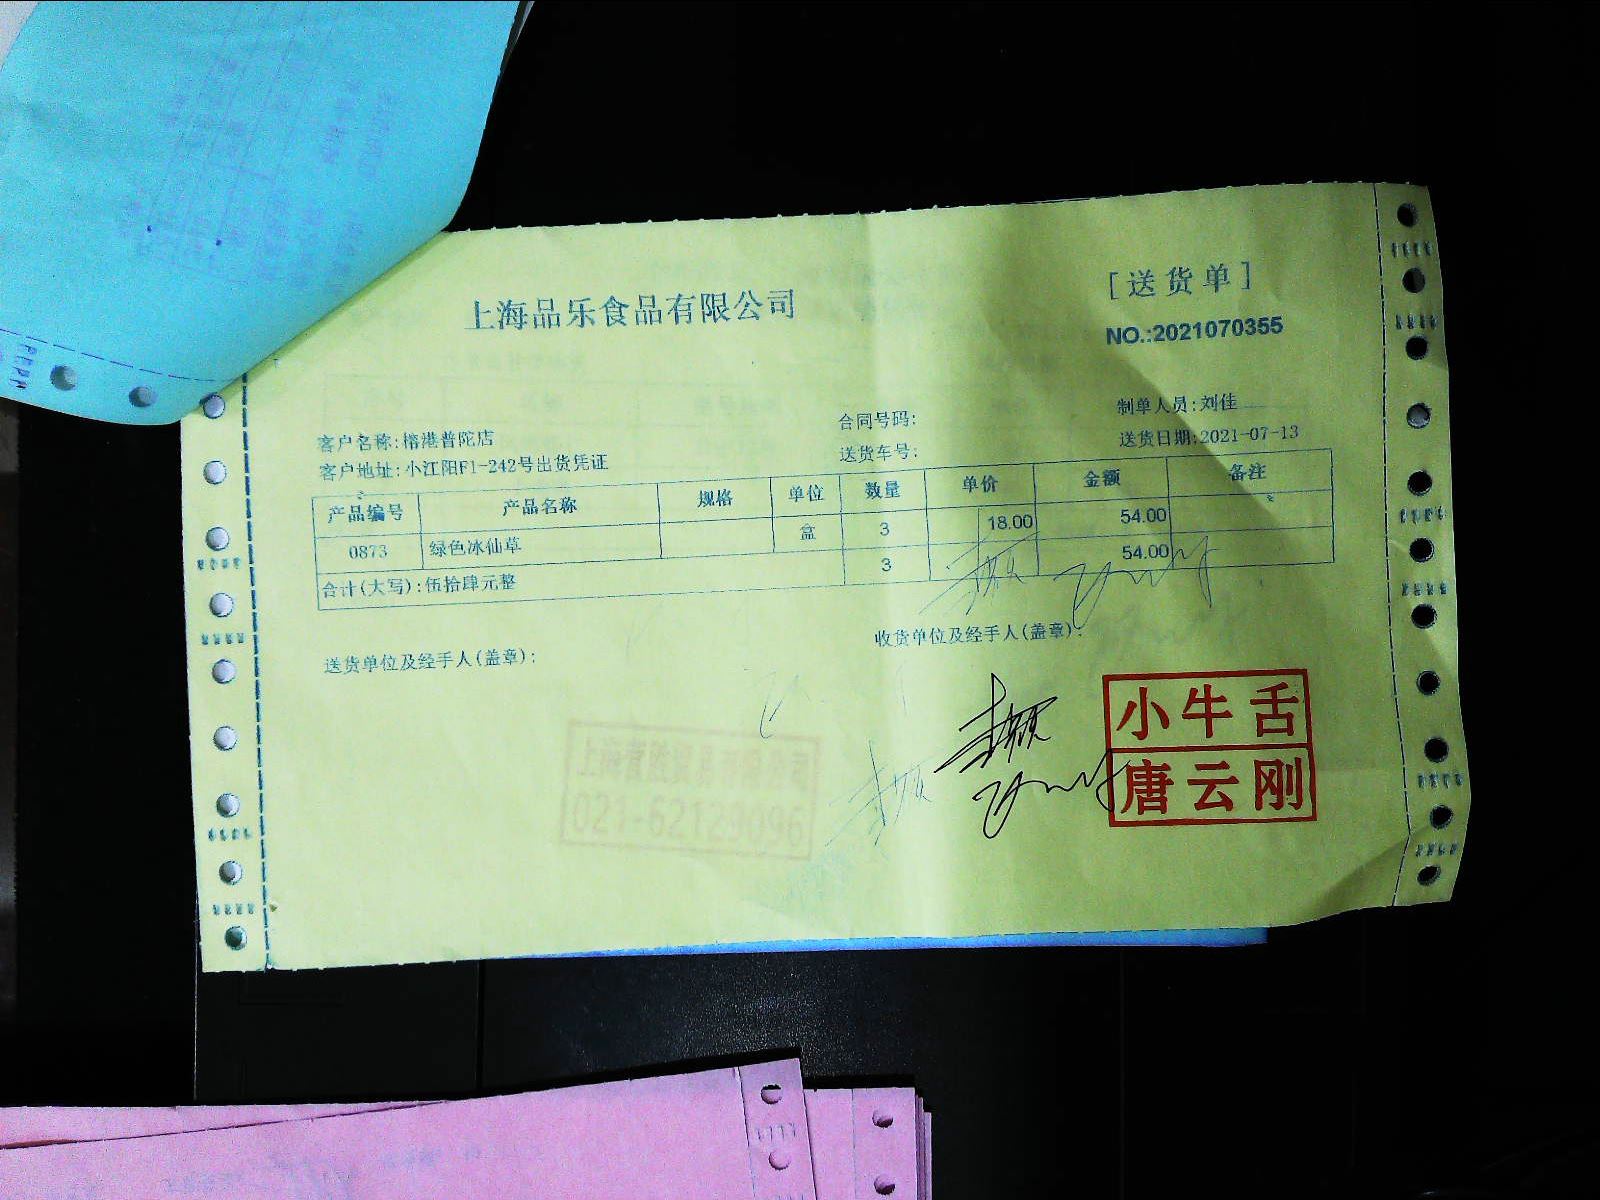 上海品乐食品有限公司
[送货单]
NO.:2021070355
合同号码:
制单人员:刘佳
客户名称:楷港普陀店
送货车号:
送货日期:2021-07-13
客户地址:小江阳F1-242号出货凭证
产品编号 产品名称 规格 单位 数量 单价 金额 备注
0873 绿色冰仙草 盒 3 18.00 54.00
合计(大写):伍拾肆元整 3 54.00
送货单位及经手人(盖章):
收货单位及经手人(盖章):
小牛舌
唐云刚
021-62129096